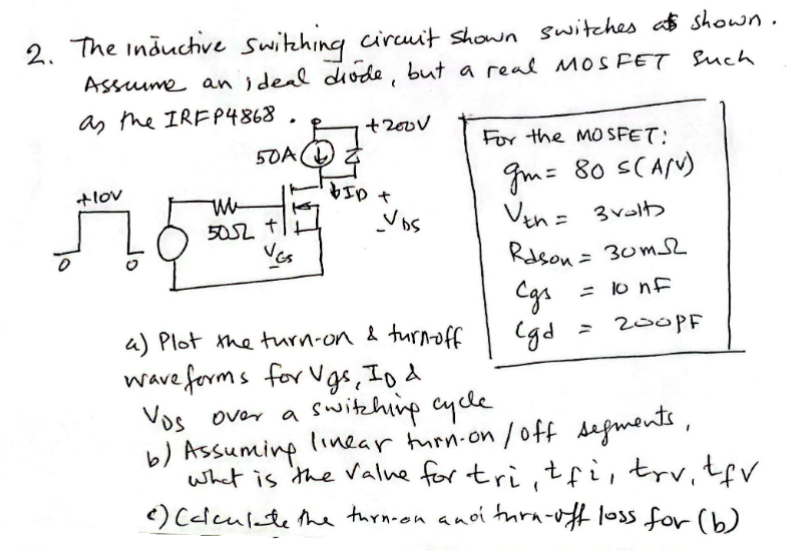 2. The inductive switching circuit shown switches as shown.
Assume an ideal diode, but a real MOSFET such
as the IRFP4868.
+200V
50A
ID +
+10V
50Ω +
- VDS
VGS
-
0 0
For the MOSFET:
gm = 80 S(A/V)
Vth = 3 volts
Rdson = 30mΩ
Cgs = 10 nF
Cgd = 200PF
a) Plot the turn-on & turn-off
waveforms for Vgs, ID &
VDS over a switching cycle
b) Assuming linear turn-on/off segments,
what is the value for tri, tfi, trv, tfv
c) Calculate the turn-on and turn-off loss for (b)